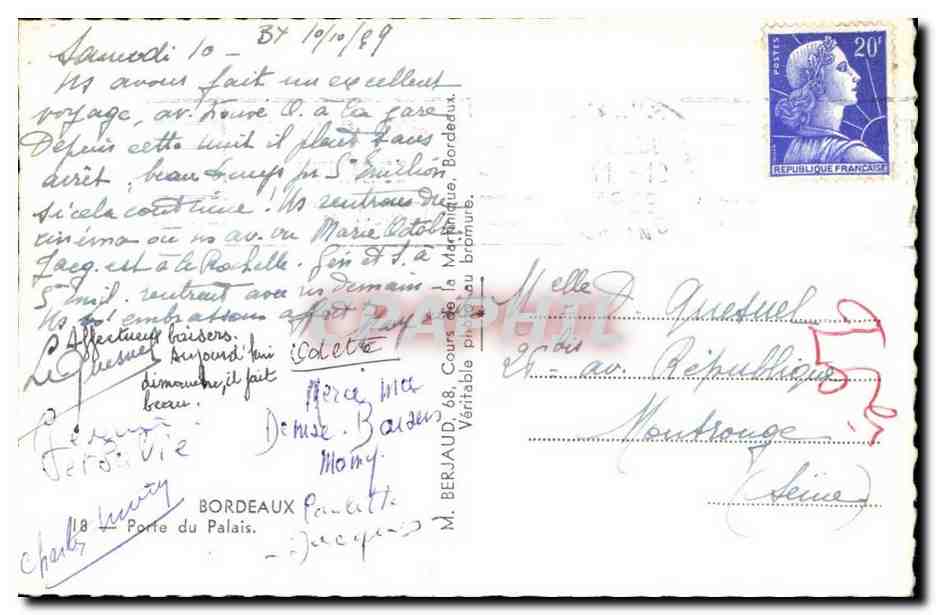 Samedi 10 - BX 10/10/59
Ns avons fait un excellent
voyage, av. trouvé O. à la gare
Depuis cette nuit il pleut sans
arrêt, beau temps pr St Emilion
si cela continue! Ns rentrons du
cinéma où ns av. vu Marie Octobre
Jacq. est à la Rochelle. Gén et J. à
St Emil. rentrent avec ns demain
Ns vs embrassons affect
Affectueux baisers.
Aujourd'hui
dimanche, il fait
beau.
Le Quesnel
Colette
Denise
Mamy
Paulette
Jacques
Charles
BORDEAUX
18 — Porte du Palais.
M. BERJAUD, 68, Cours de la Martinique, Bordeaux.
Véritable photo au bromure.
POSTES
20F
REPUBLIQUE FRANÇAISE
Melle D. Quesnel
26 bis av. République
Montrouge
(Seine)
CPAPHIL